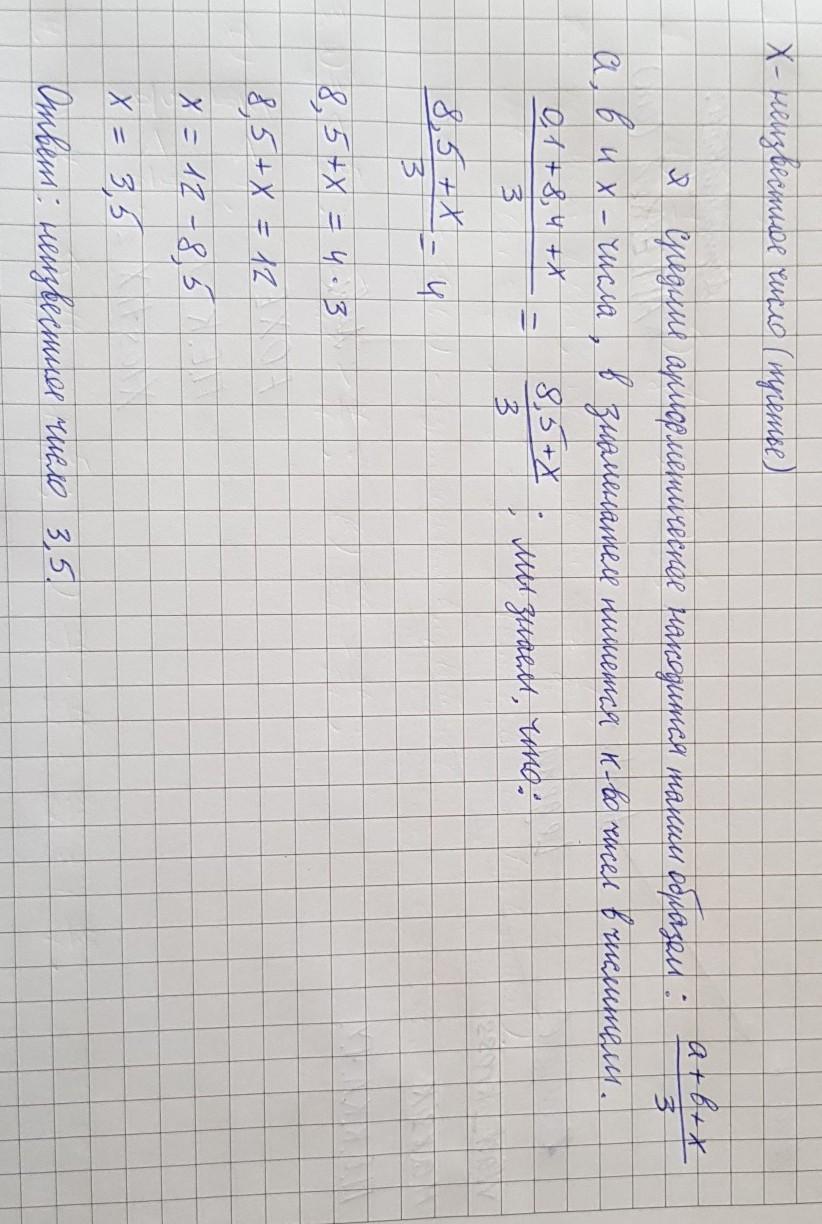 х - неизвестное число (третье)
среднее арифметическое находится таким образом: a + b + x / 3
a, b и x - числа, в знаменателе пишется к-во чисел в числителе.
0,1 + 8,4 + x / 3 = 8,5 + x / 3 ; мы знаем, что:
8,5 + x / 3 = 4
8,5 + x = 4 · 3
8,5 + x = 12
x = 12 - 8,5
x = 3,5
Ответ: неизвестное число 3,5.